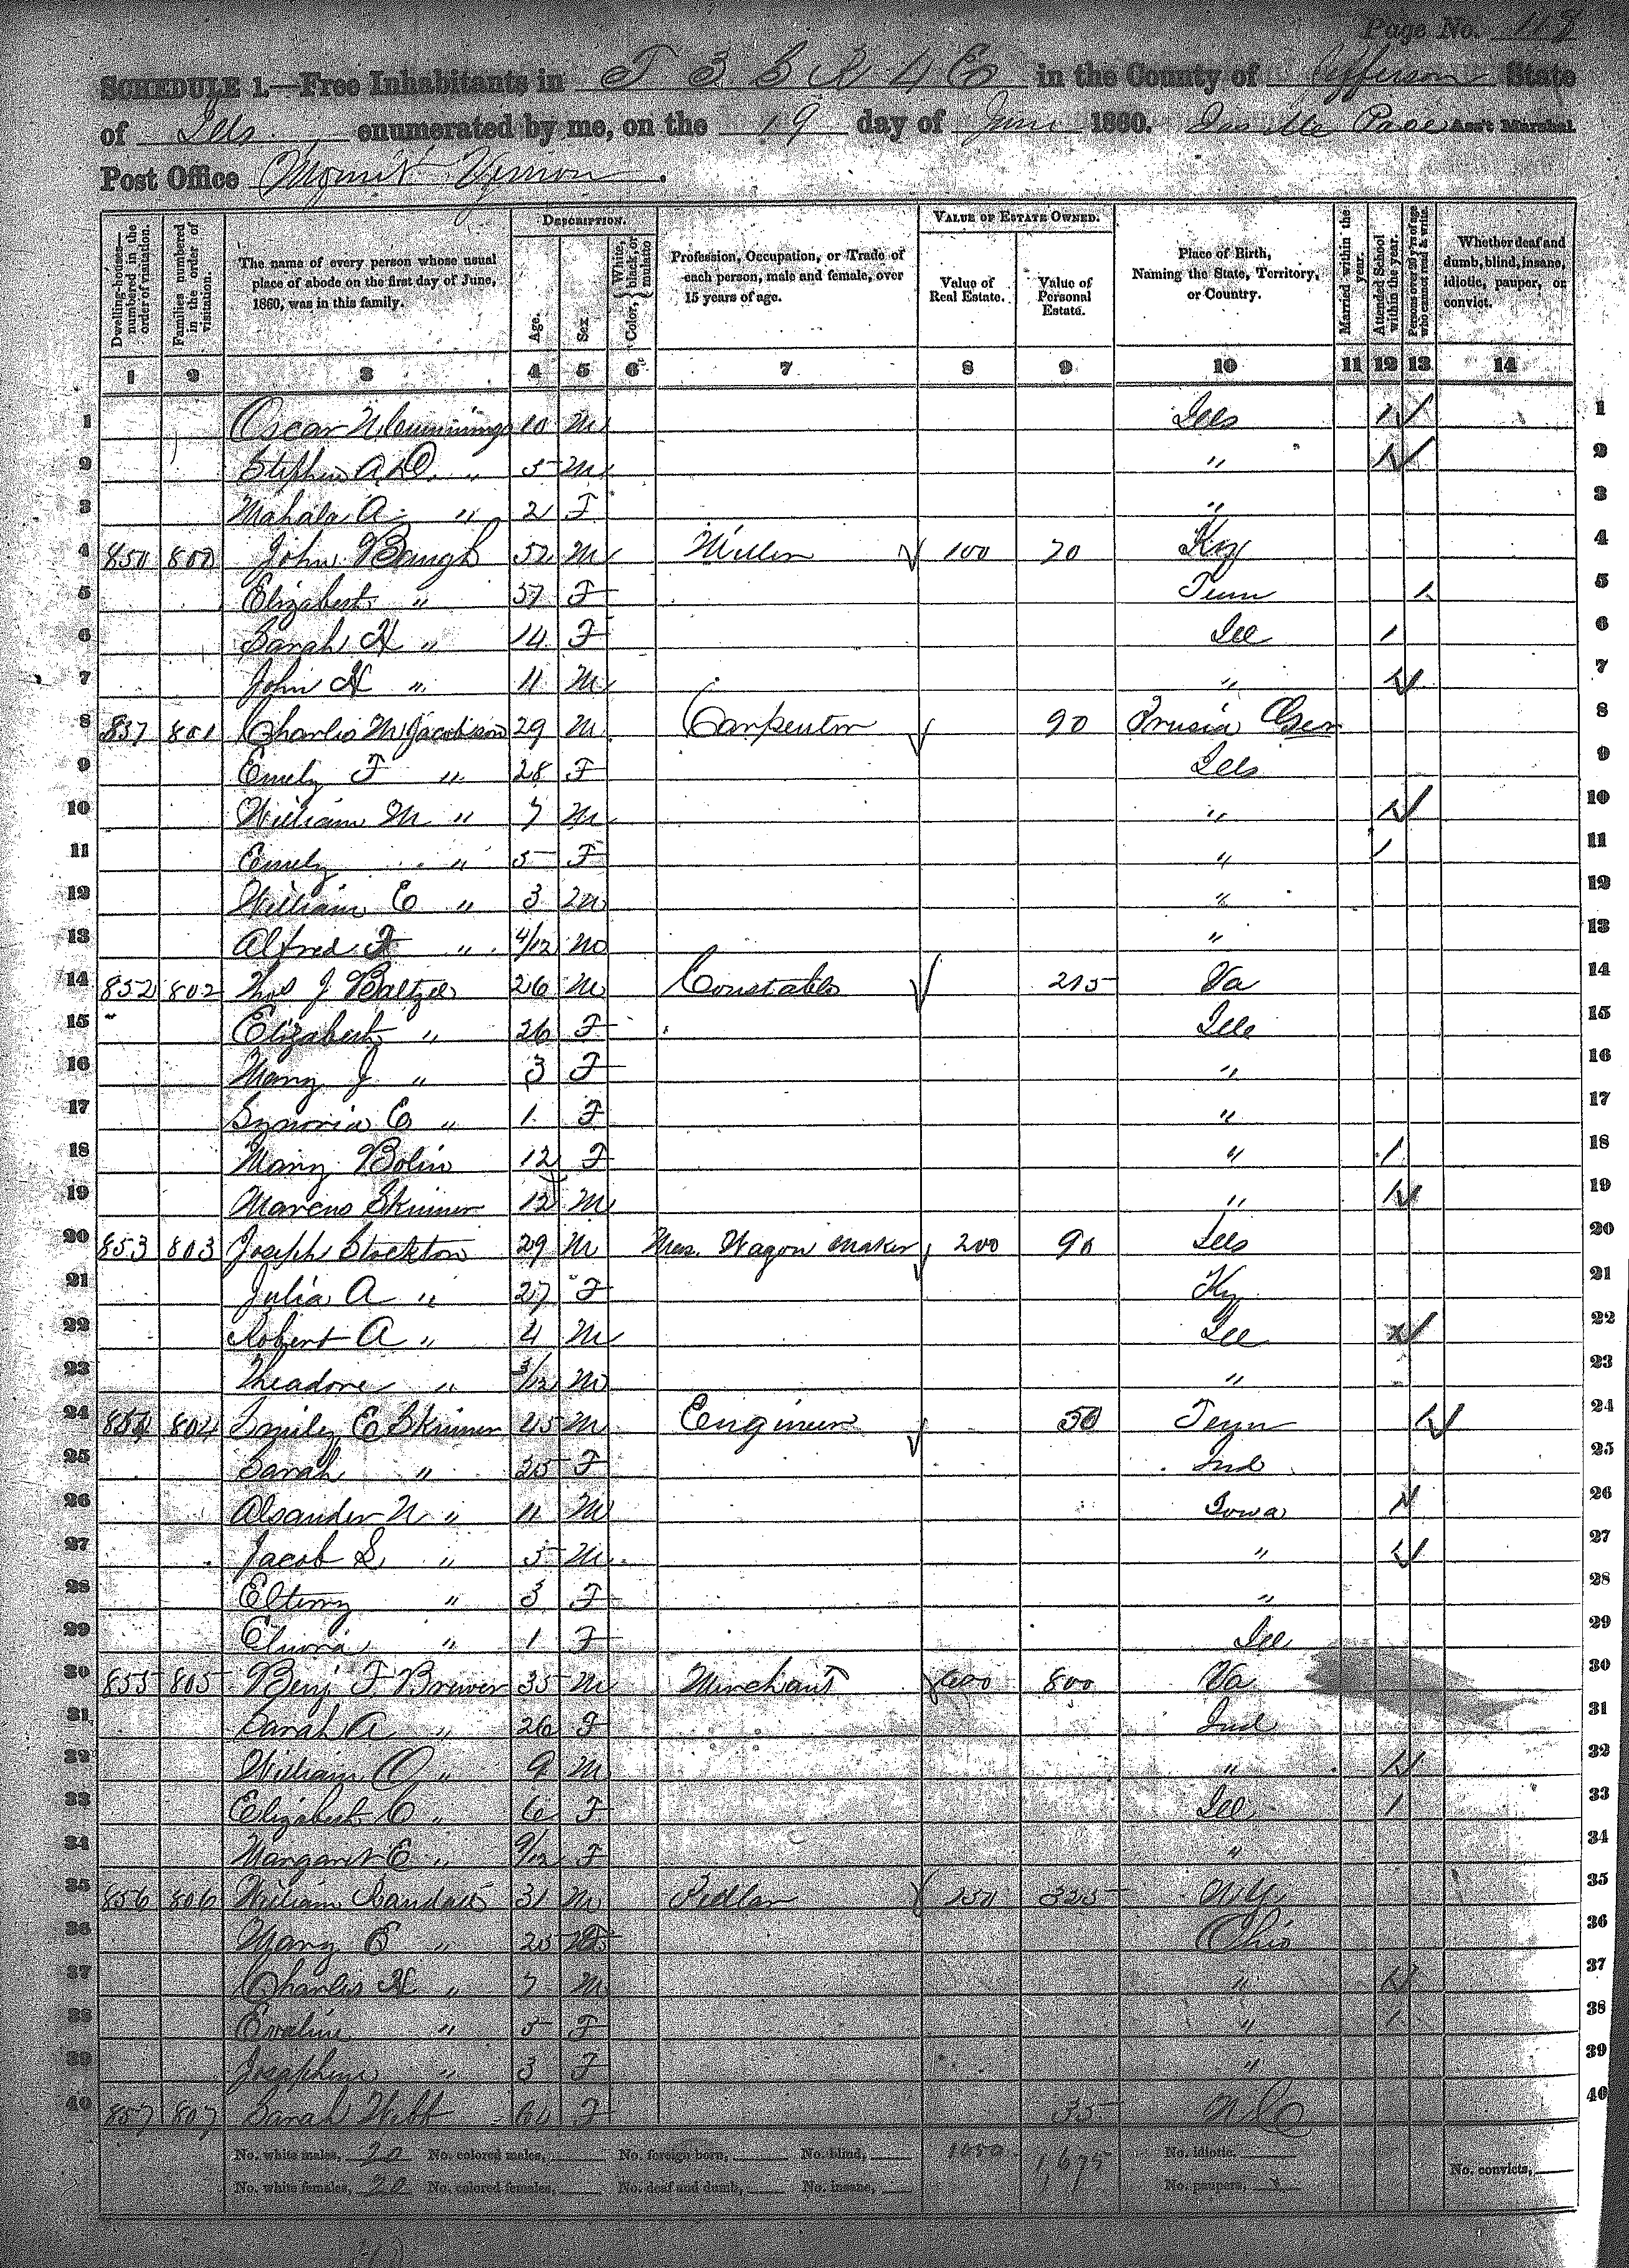 Page No. 118
SCHEDULE 1.—Free Inhabitants in T 3 S R 4 E in the County of Jefferson State
of Ills enumerated by me, on the 19 day of June 1860. Pace Ass't Marshal
Post Office Mount Vernon.
Dwelling-houses—numbered in the order of visitation. Families numbered in the order of visitation. The name of every person whose usual place of abode on the first day of June, 1860, was in this family. DESCRIPTION. Age. Sex. Color, White, black, or mulatto Profession, Occupation, or Trade of each person, male and female, over 15 years of age. VALUE OF ESTATE OWNED. Value of Real Estate. Value of Personal Estate. Place of Birth, Naming the State, Territory, or Country. Married within the year. Attended School within the year. Persons over 20 y'rs of age who cannot read & write. Whether deaf and dumb, blind, insane, idiotic, pauper, or convict.
1 2 3 4 5 6 7 8 9 10 11 12 13 14
1 Oscar N Cummings 10 M Ills 1 1
2 Stephen A. D. " 5 M " 1 2
3 Mahala A " 2 F " 3
4 850 800 John Baugh 52 M Miller 100 70 Ky 4
5 Elizabeth " 57 F Tenn 1 5
6 Sarah H " 14 F Ill 1 6
7 John H " 11 M " 1 7
8 801 Charles M Jacobson 29 M Carpenter 90 Prusia Ger 8
9 Emily F " 28 F Ills 9
10 William M " 7 M " 1 10
11 Emily " 5 F " 1 11
12 William E " 3 M " 12
13 Alfred F " 4/12 M " 13
14 852 802 Thos J Baltzel 26 M Constable 215 Va 14
15 Elizabeth " 26 F Ills 15
16 Mary J " 3 F " 16
17 E " 1 F " 17
18 Mary Bolin 12 F " 1 18
19 Marcus Skinner 12 M " 1 19
20 853 803 Joseph Stockton 29 M Mas. Wagon Maker 200 90 Ills 20
21 Julia A " 27 F Ky 21
22 Robert A " 4 M Ill 22
23 Theadore " 3/12 M " 23
24 854 804 Smiley E Skinner 45 M Engineer 50 Tenn 1 24
25 Sarah " 25 F Ind 25
26 Alsander N " 11 M Iowa 1 26
27 Jacob S " 5 M " 1 27
28 " 3 F " 28
29 Elmira " 1 F Ill 29
30 855 805 Benj F Brewer 35 M Merchant 600 800 Va 30
31 Sarah A " 26 F Ind 31
32 William O " 9 M " 1 32
33 Elizabeth C " 6 F Ill 1 33
34 Margaret E " 9/12 F " 34
35 856 806 William 31 M Pedlar 150 325 N Y 35
36 Mary E " 25 F Ohio 36
37 Charles H " 7 M " 1 37
38 Evaline " 5 F " 1 38
39 Josephine " 3 F " 39
40 857 807 Sarah Webb F 35 N C 40
No. white males, 20 No. colored males, No. foreign born, No. blind, 1050 1,675 No. idiotic.
No. white females, 20 No. colored females, No. deaf and dumb, No. insane, No. paupers, No. convicts,